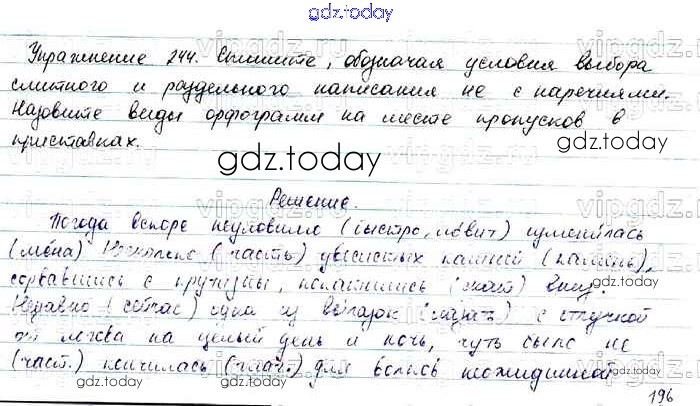 gdz.today
Упражнение 244. Спишите, обозначая условия выбора
слитного и раздельного написания не с наречиями.
Назовите виды орфограмм на месте пропусков в
приставках.
gdz.today gdz.today
Решение.
Погода вскоре неуловимо (быстро, ловит) изменилась
(мена) Несколько (часть) увесистых камней (камень),
сорвавшись с крутизны, покатились (скат) вниз.
Недавно (сейчас) одна из вылазок (лазать) с отлучкой
от логова на целый день и ночь, чуть было не
(част.) кончилась (глаг.) для волчих неожиданной
gdz.today gdz.today gdz.today
196